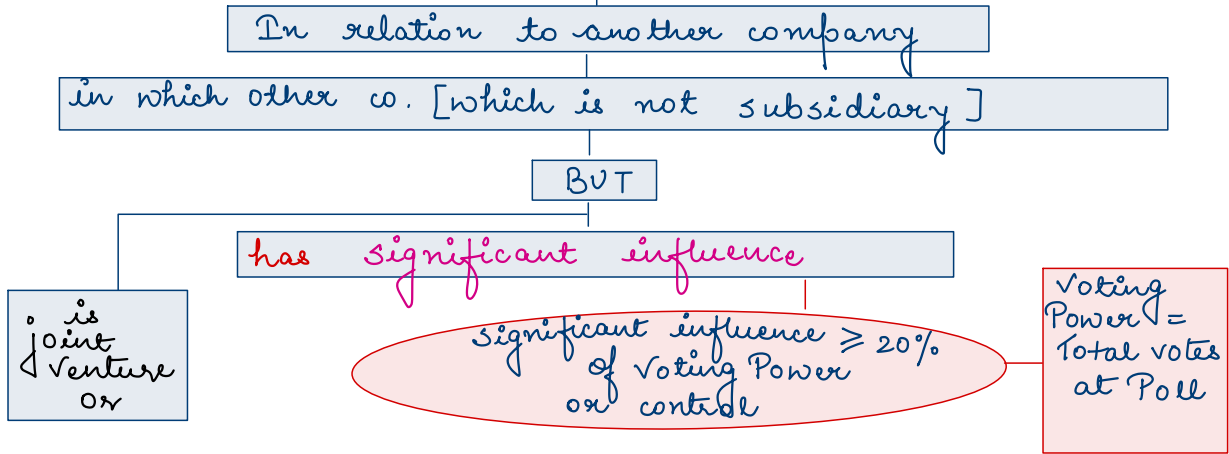 In relation to another company
in which other co. [which is not subsidiary]
BUT
has significant influence
is
joint
venture
or
significant influence ⩾ 20%
of Voting Power
or control
Voting
Power =
Total votes
at Poll